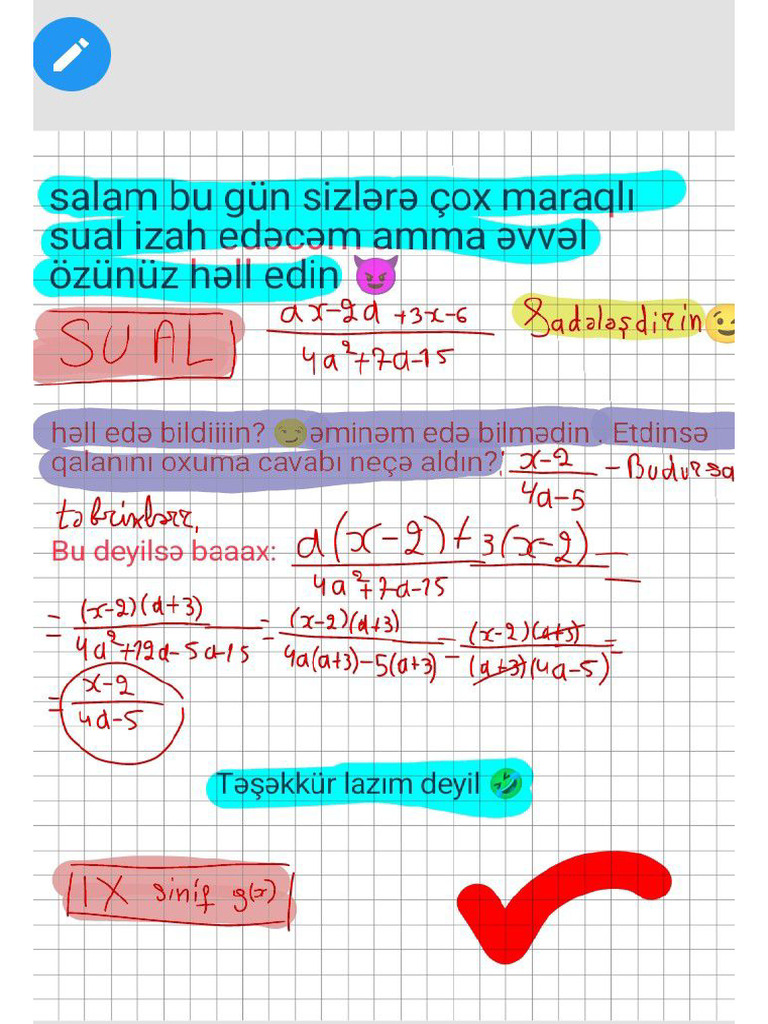 salam bu gün sizlərə çox maraqlı
sual izah edəcəm amma əvvəl
özünüz həll edin 😈
SUAL
ax-2a+3x-6
4a²+7a-15
Sadələşdirin 😉
həll edə bildiiiin? 😏 əminəm edə bilmədin . Etdinsə
qalanını oxuma cavabı neçə aldın?: x-2 / 4a-5 - Budursa
təbriklərr,
Bu deyilsə baaax: a(x-2)+3(x-2) / 4a²+7a-15 =
= (x-2)(a+3) / 4a²+12a-5a-15 = (x-2)(a+3) / 4a(a+3)-5(a+3) = (x-2)(a+3) / (a+3)(4a-5) =
= x-2 / 4a-5
Təşəkkür lazım deyil 🤣
IX sinif g(x)